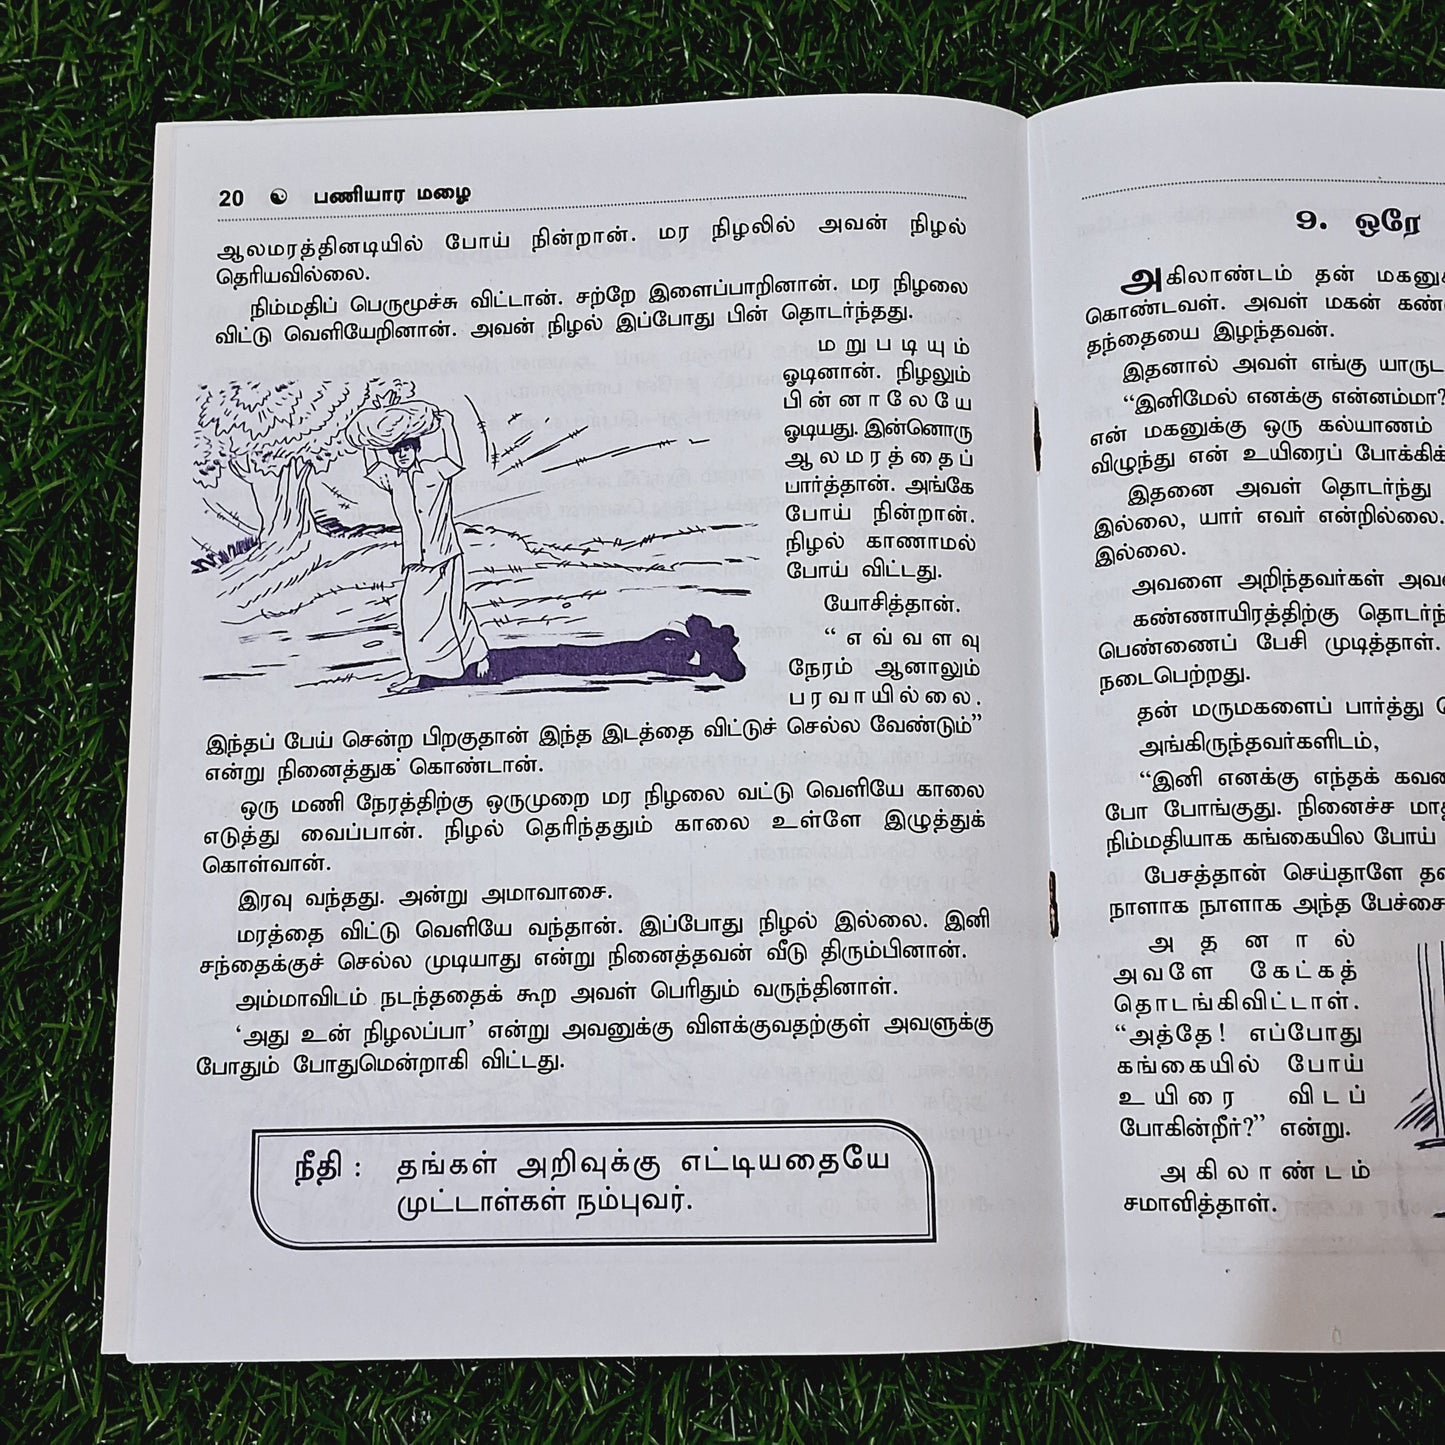 20 பணியார மழை
ஆலமரத்தினடியில் போய் நின்றான். மர நிழலில் அவன் நிழல்
தெரியவில்லை.
நிம்மதிப் பெருமூச்சு விட்டான். சற்றே இளைப்பாறினான். மர நிழலை
விட்டு வெளியேறினான். அவன் நிழல் இப்போது பின் தொடர்ந்தது.
மறுபடியும்
ஓடினான். நிழலும்
பின்னாலேயே
ஓடியது. இன்னொரு
ஆலமரத்தைப்
பார்த்தான். அங்கே
போய் நின்றான்.
நிழல் காணாமல்
போய் விட்டது.
யோசித்தான்.
“எவ்வளவு
நேரம் ஆனாலும்
பரவாயில்லை.
இந்தப் பேய் சென்ற பிறகுதான் இந்த இடத்தை விட்டுச் செல்ல வேண்டும்”
என்று நினைத்துக் கொண்டான்.
ஒரு மணி நேரத்திற்கு ஒருமுறை மர நிழலை வட்டு வெளியே காலை
எடுத்து வைப்பான். நிழல் தெரிந்ததும் காலை உள்ளே இழுத்துக்
கொள்வான்.
இரவு வந்தது. அன்று அமாவாசை.
மரத்தை விட்டு வெளியே வந்தான். இப்போது நிழல் இல்லை. இனி
சந்தைக்குச் செல்ல முடியாது என்று நினைத்தவன் வீடு திரும்பினான்.
அம்மாவிடம் நடந்ததைக் கூற அவள் பெரிதும் வருந்தினாள்.
‘அது உன் நிழலப்பா’ என்று அவனுக்கு விளக்குவதற்குள் அவளுக்கு
போதும் போதுமென்றாகி விட்டது.
நீதி : தங்கள் அறிவுக்கு எட்டியதையே
முட்டாள்கள் நம்புவர்.
9. ஒரே
அகிலாண்டம் தன்
கொண்டவள். அவள் மகன்
தந்தையை இழந்தவன்.
இதனால் அவள் எங்கு
“இனிமேல் எனக்கு என்னம்மா?
என் மகனுக்கு ஒரு கல்யாணம்
விழுந்து என் உயிரைப்
இதனை அவள் தொடர்ந்து
இல்லை, யார் எவர் என்றில்லை.
இல்லை.
அவளை அறிந்தவர்கள்
கண்ணாயிரத்திற்கு
பெண்ணைப் பேசி முடித்தாள்.
நடைபெற்றது.
தன் மருமகளைப் பார்த்து
அங்கிருந்தவர்களிடம்,
“இனி எனக்கு எந்தக்
போ போங்குது. நினைச்ச
நிம்மதியாக கங்கையில போய்
பேசத்தான் செய்தாளே
நாளாக நாளாக அந்த
அதனால்
அவளே கேட்கத்
தொடங்கிவிட்டாள்.
“அத்தே! எப்போது
கங்கையில் போய்
உயிரை விடப்
போகின்றீர்?” என்று.
அகிலாண்டம்
சமாவித்தாள்.